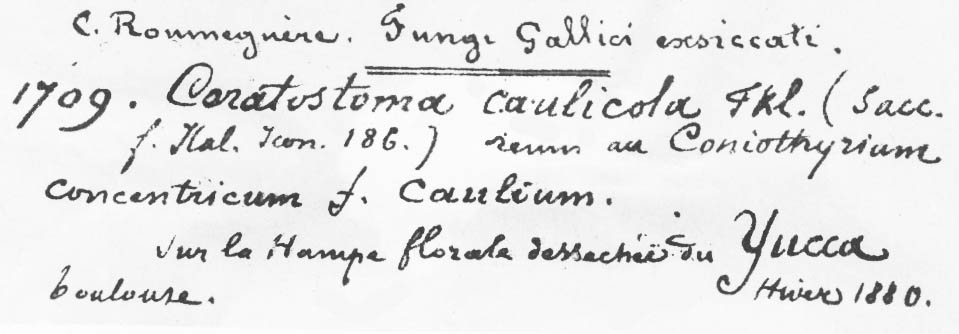 C. Roumeguère. Fungi Gallici exsiccati.
1709. Ceratostoma caulicola Fkl. (Sacc.
f. Ital. Icon. 186.) reuni au Coniothyrium
concentricum f. Caulium.
sur la Hampe florale dessechée du Yucca
Toulouse. Hiver 1880.